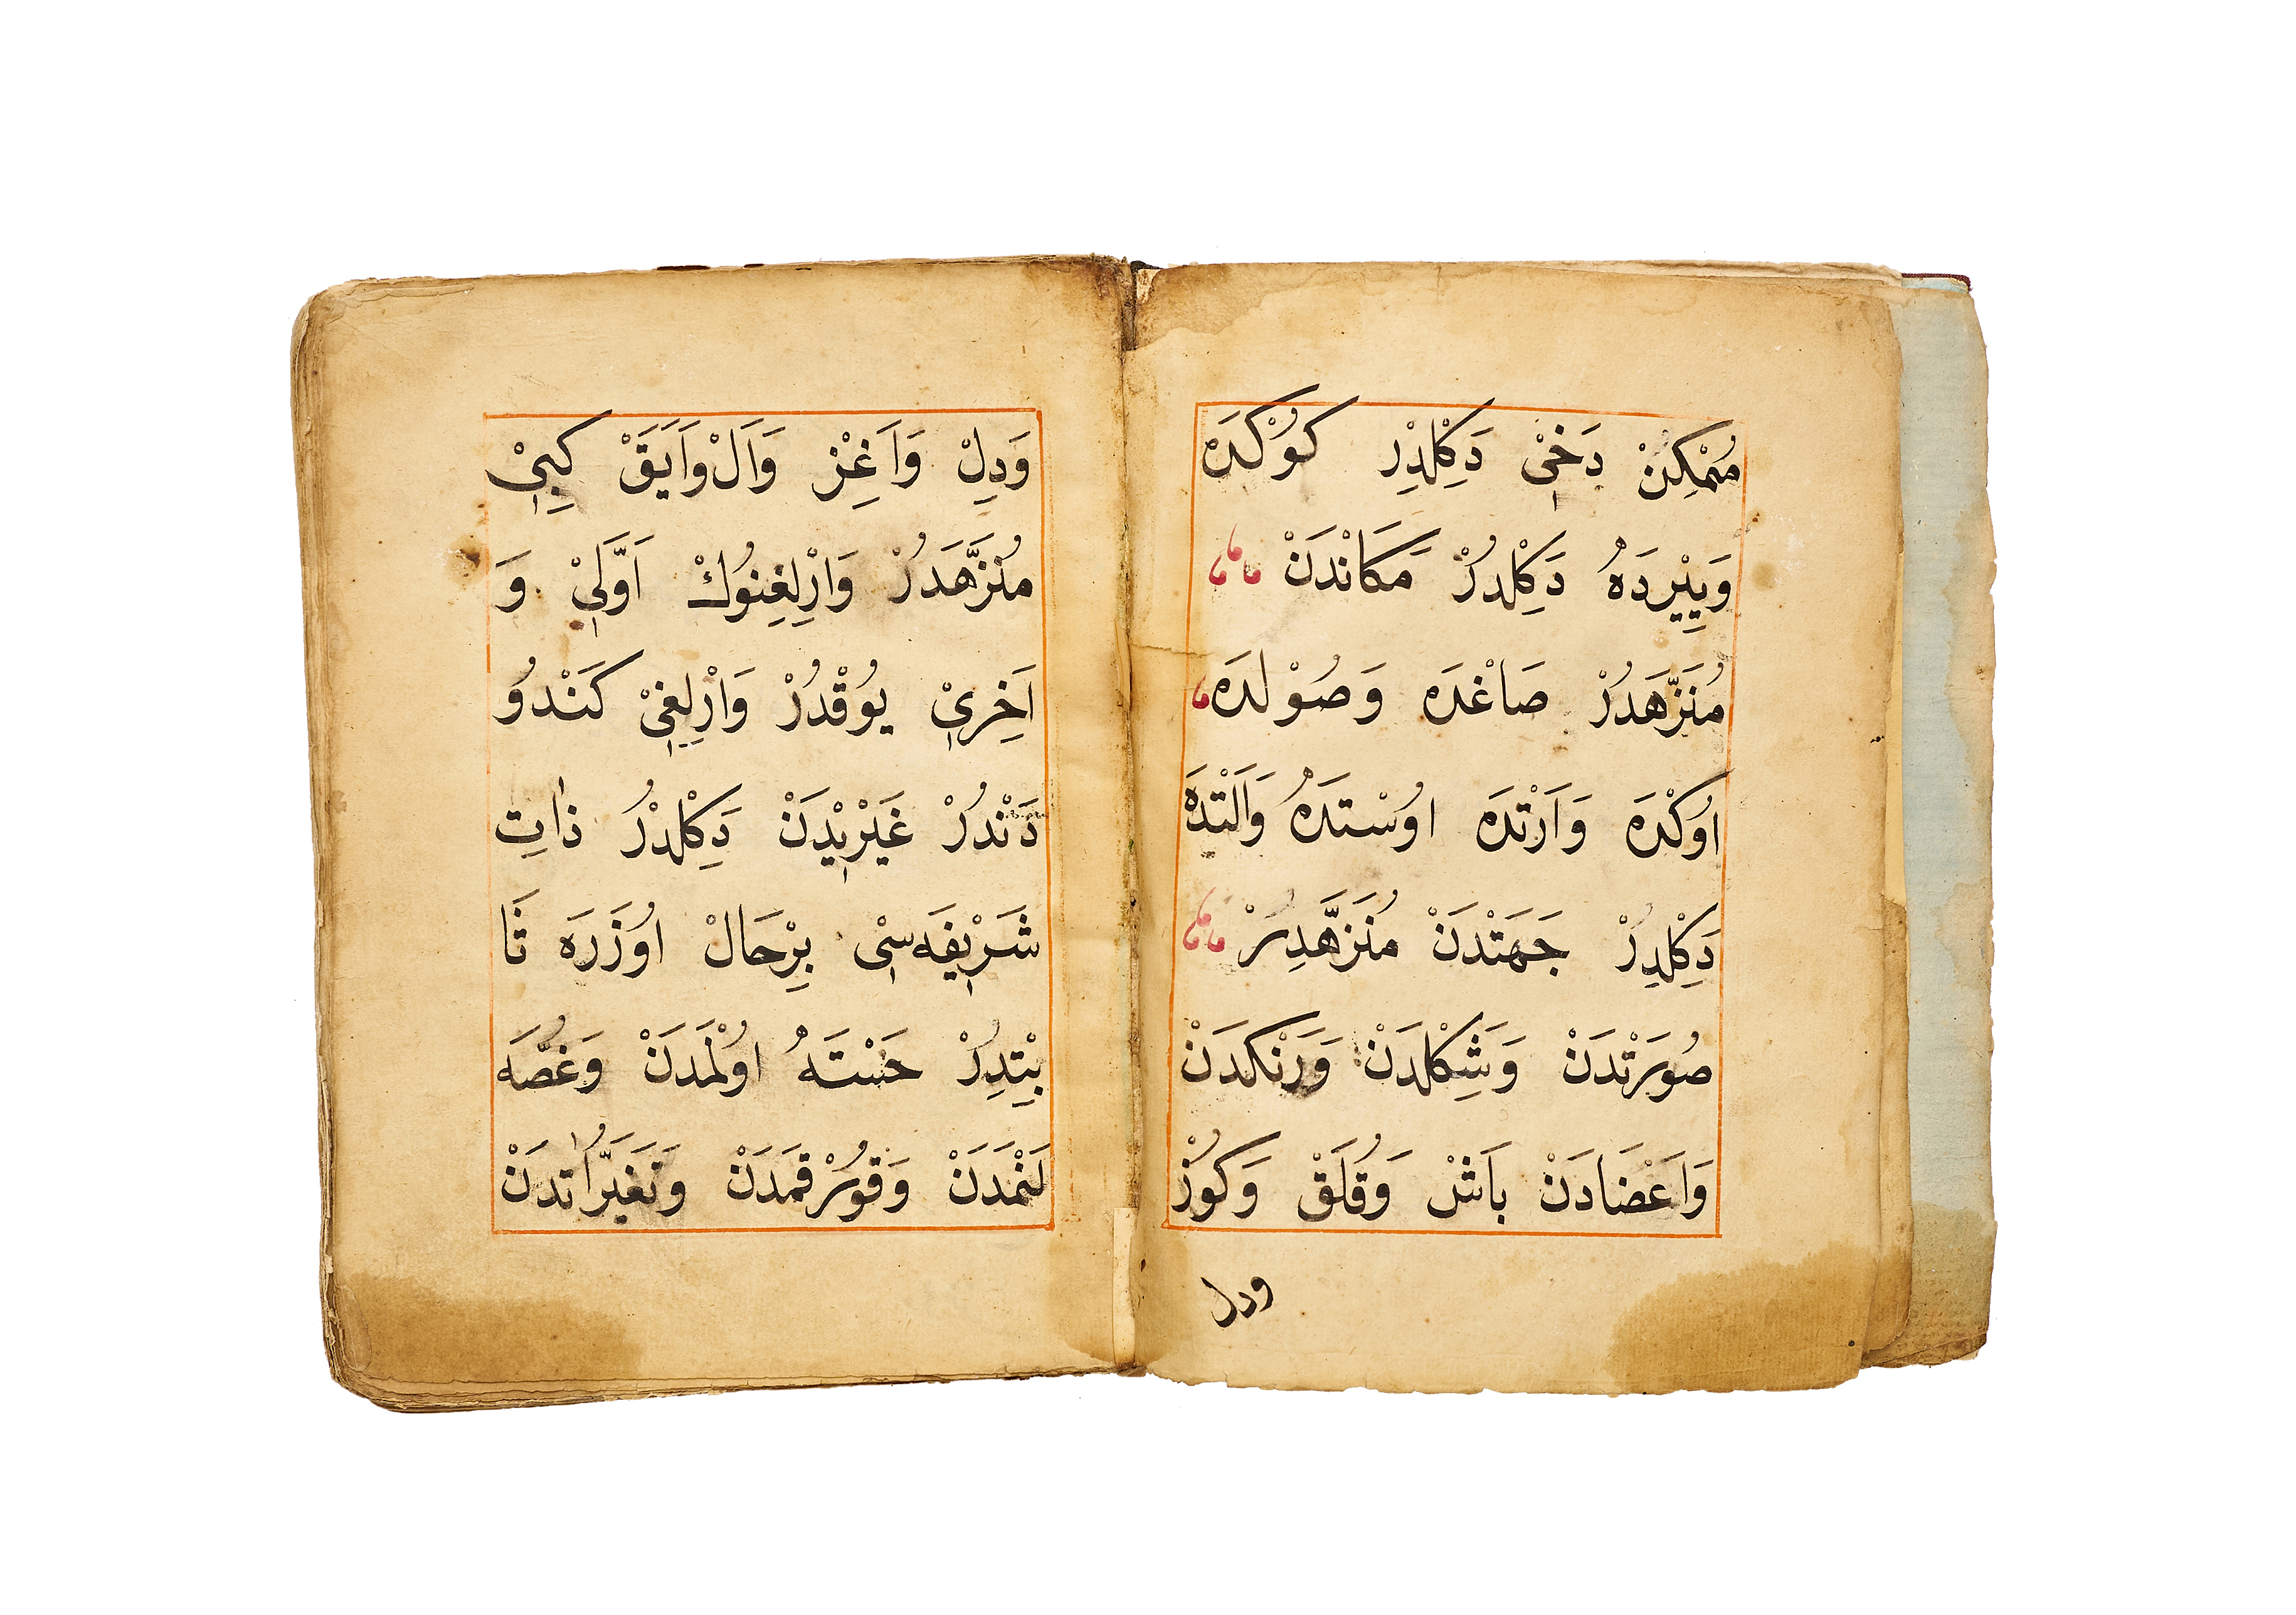 مُمْكِنْ دَخٖيْ دَكِلْدِرْ كُوكْدَهْ
وَيِيْرِدَهُ دَكِلْدُرْ مَكَانْدَنْ
مُنَزَّهَدُرْ صَاغْدَه وَصُوْلدَه
اُوكْدَه وَاَرْتْدَه اوُسْتدَهُ وَاَلْتْدَهْ
دَكِلْدِرُ جَهَتْدَنْ مُنَزَّهْدِرُرْ
صُورَتْدَنْ وَشَكِلْدَنْ وَرَنْكدَنْ
وَاَعْضَادَنْ بَاشْ وَقُلَقْ وَكُوزْ
ودل
وَدِلْ وَاَغِزْ وَاَلْ وَاَيَقْ كِبٖيْ
مُنَزَّهَدُرْ وَارْلِغِنُوكْ اَوَّلٖيْ وَ
اَخِرٖيْ يُوقْدُرْ وَارْلِغٖيْ كَنْدُو
دَنْدُرْ غَيْرٖيْدَنْ دَكِلْدُرْ ذَاتِ
شَرٖيفَهسْٖى بِرْحَالْ اوُزَرَه ثَا
بِتْدِرُ حَسْتَهُ اوُلْمَدَنْ وَغُصَّه
لَنْمَدَنْ وَقُورْقمَدَنْ وَتَغَيُّرَاتدَنْ